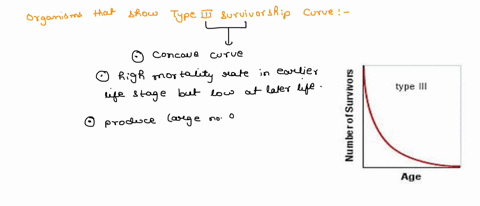 Organisms that show Type III survivorship curve:-
concave curve
high mortality rate in earlier
life stage but low at later life.
produce large no. o
type III
Number of Survivors
Age